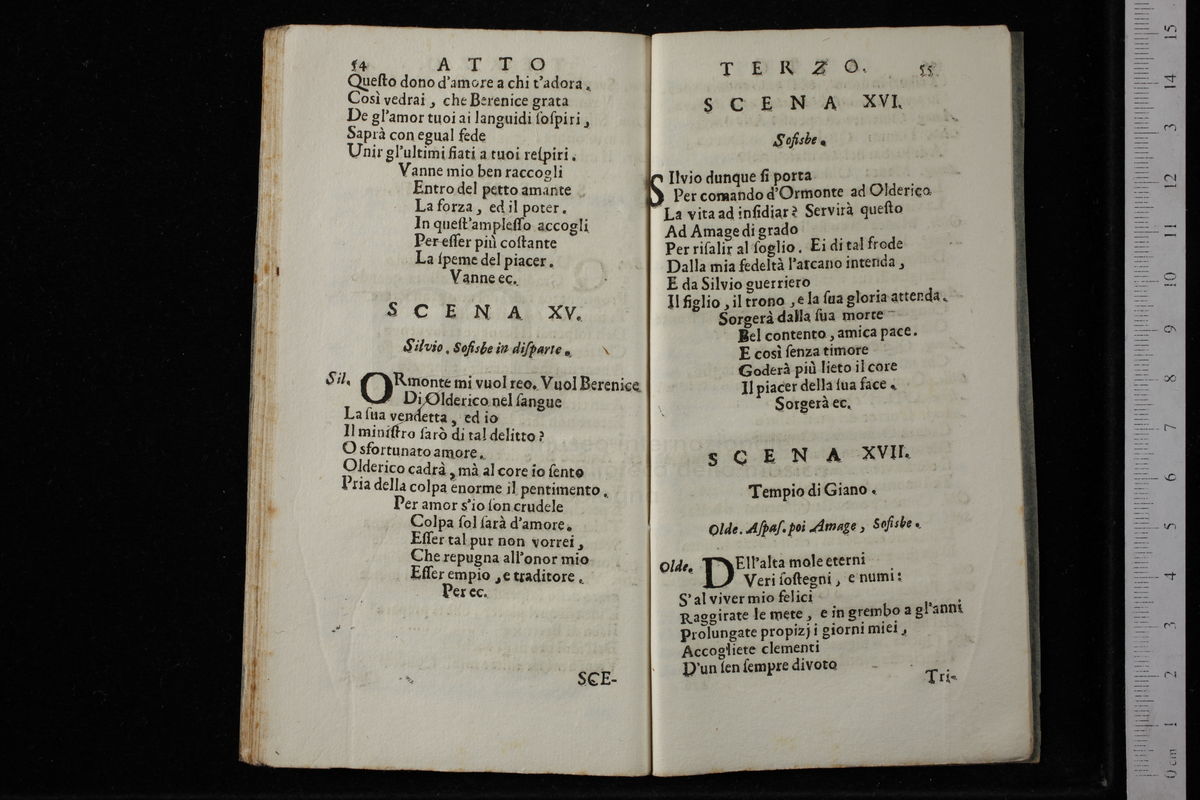 54 ATTO
Questo dono d'amore a chi t'adora.
Così vedrai, che Berenice grata
De gl'amor tuoi ai languidi sospiri,
Saprà con egual fede
Unir gl'ultimi fiati a tuoi respiri.
Vanne mio ben raccogli
Entro del petto amante
La forza, ed il poter.
In quest'amplesso accogli
Per esser più costante
La speme del piacer.
Vanne ec.
SCENA XV.
Silvio. Sofisbe in disparte.
Sil. ORmonte mi vuol reo. Vuol Berenice
Di Olderico nel sangue
La sua vendetta, ed io
Il ministro sarò di tal delitto?
O sfortunato amore.
Olderico cadrà, mà al core io sento
Pria della colpa enorme il pentimento.
Per amor s'io son crudele
Colpa sol sarà d'amore.
Esser tal pur non vorrei,
Che repugna all'onor mio
Esser empio, e traditore.
Per ec.
SCE-
TERZO. 55
SCENA XVI.
Sofisbe.
SIlvio dunque si porta
Per comando d'Ormonte ad Olderico
La vita ad insidiar? Servirà questo
Ad Amage di grado
Per risalir al soglio. Ei di tal frode
Dalla mia fedeltà l'arcano intenda,
E da Silvio guerriero
Il figlio, il trono, e la sua gloria attenda.
Sorgerà dalla sua morte
Bel contento, amica pace.
E così senza timore
Goderà più lieto il core
Il piacer della sua face.
Sorgerà ec.
SCENA XVII.
Tempio di Giano.
Olde. Aspas. poi Amage, Sofisbe.
Olde. DEll'alta mole eterni
Veri sostegni, e numi:
S'al viver mio felici
Raggirate le mete, e in grembo a gl'anni
Prolungate propizj i giorni miei,
Accogliete clementi
D'un sen sempre divoto
Tri-
0 cm 1 2 3 4 5 6 7 8 9 10 11 12 13 14 15